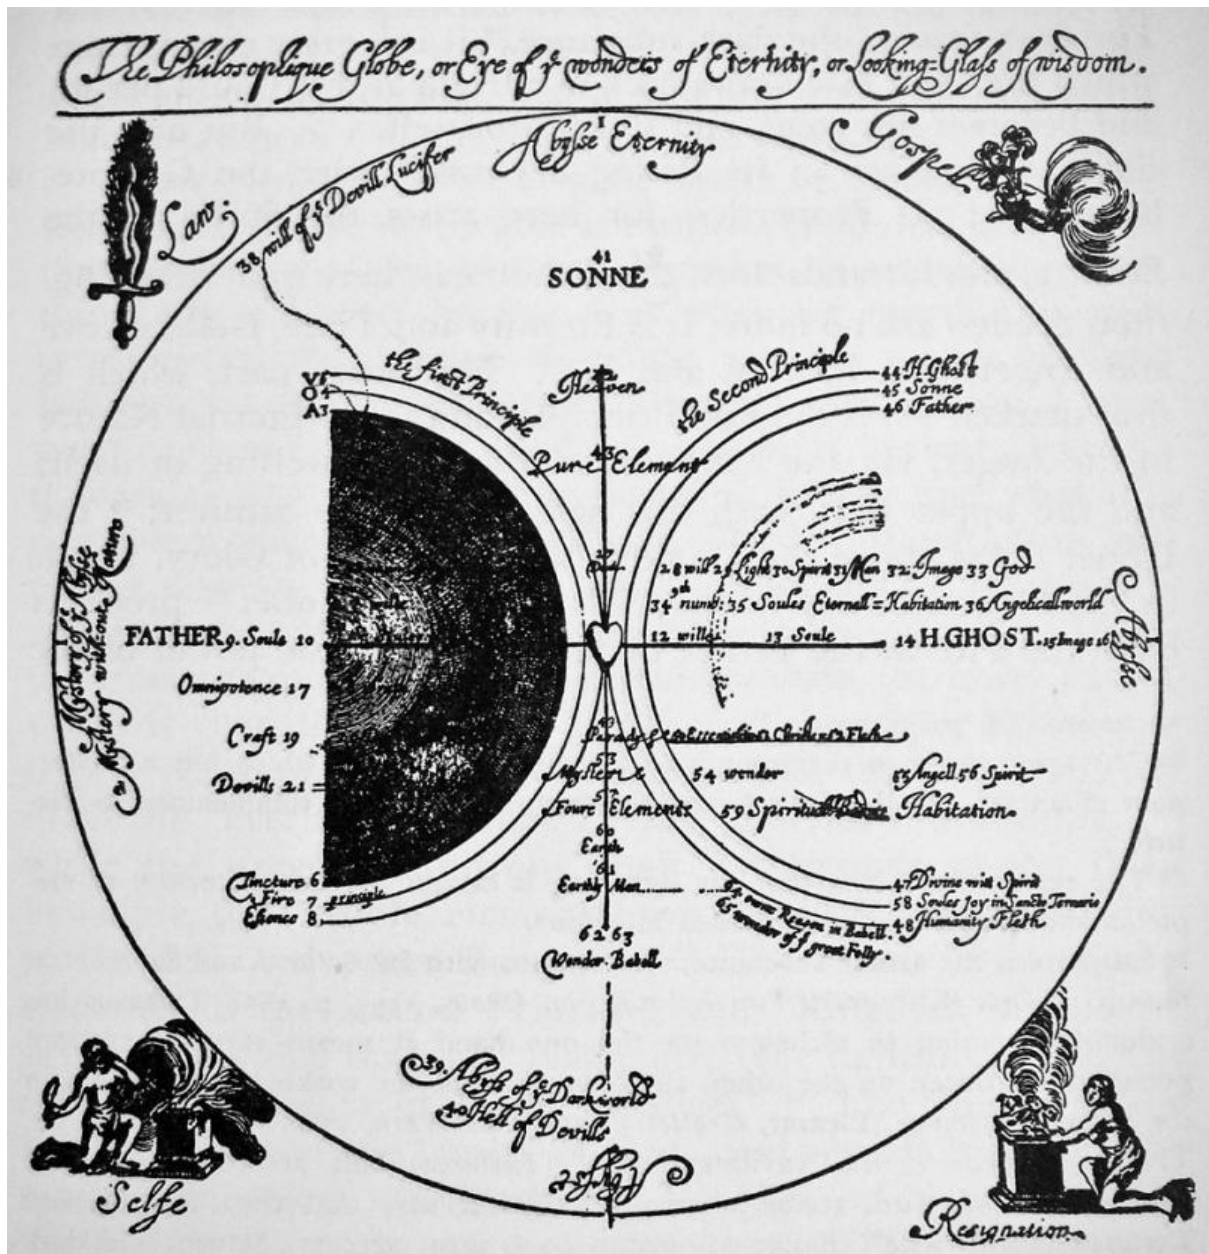 The Philosophique Globe, or Eye of yᵉ wonders of Eternity, or Looking=Glass of wisdom.
1
Abysse Eternity
Law.
Gospel
38 will of yᵉ Devill Lucifer
41
SONNE
the first Principle
the Second Principle
42
Heaven
V5
O4
A3
44 H. Ghost
45 Sonne
46 Father
43
Pure Element
27
28 will 29 Light 30 Spirit 31 Man 32 Image 33 God
34 9th numb: 35 Soules Eternall=Habitation 36 Angelicall world
FATHER 9. Soule 10
12 will 13 Soule 14 H. GHOST. 15 Image 16
Abysse
Mystery of yᵉ Abysse
2 Mystery with-out Nature
Omnipotence 17
Craft 19
Devills 21
Mysterie 54 wonder 55 Angell 56 Spirit
Foure Elements 59 Spirituall Habitation
60
Earth
61
Earthy Man
Tincture 6
Fire 7 principle
Essence 8
47 Divine will Spirit
58 Soules Joy in Sancto Ternario
48 Humanity Flesh
64 owne Reason in Babell.
65 wonder of yᵉ great Folly.
62 63
Wonder Babell
39. Abysse of yᵉ Dark world
40 Hell of Devills
Abysse
Selfe
Resignation